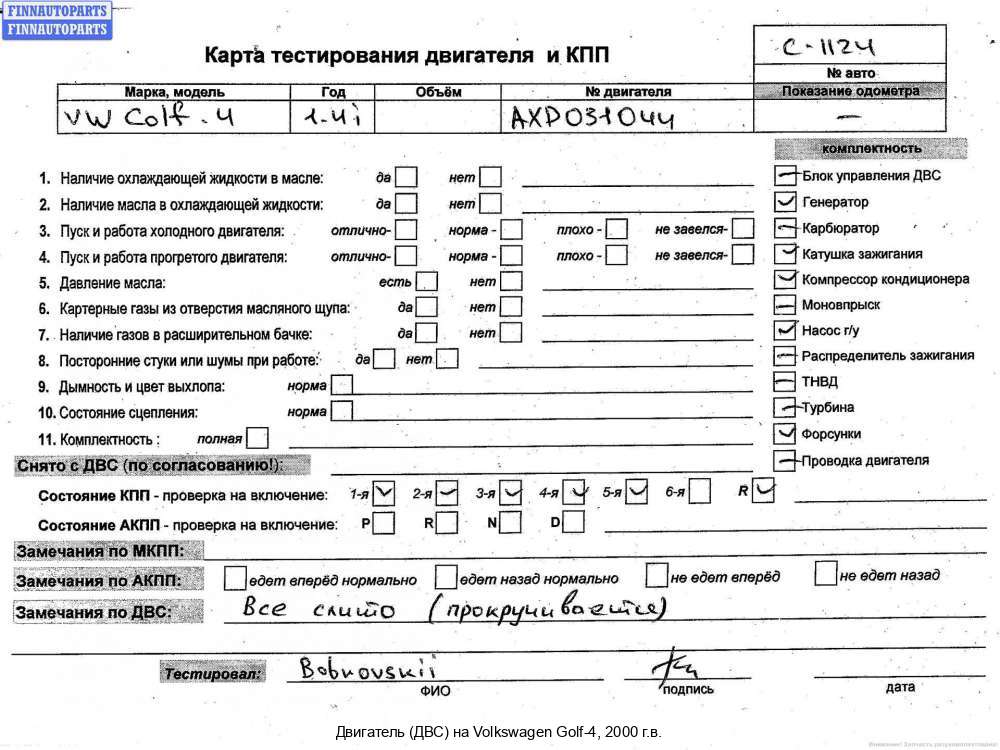 FINNAUTOPARTS
FINNAUTOPARTS
Карта тестирования двигателя и КПП
C-1124
№ авто
Марка, модель Год Объём № двигателя Показание одометра
VW Golf - 4 1.4i AXP031044 —
комплектность
1. Наличие охлаждающей жидкости в масле: да нет
Блок управления ДВС
2. Наличие масла в охлаждающей жидкости: да нет
Генератор
3. Пуск и работа холодного двигателя: отлично- норма - плохо - не завелся-
Карбюратор
4. Пуск и работа прогретого двигателя: отлично- норма - плохо - не завелся-
Катушка зажигания
5. Давление масла: есть нет
Компрессор кондиционера
6. Картерные газы из отверстия масляного щупа: да нет
Моновпрыск
7. Наличие газов в расширительном бачке: да нет
Насос г/у
8. Посторонние стуки или шумы при работе: да нет
Распределитель зажигания
9. Дымность и цвет выхлопа: норма
ТНВД
10. Состояние сцепления: норма
Турбина
11. Комплектность : полная
Форсунки
Снято с ДВС (по согласованию!):
Проводка двигателя
Состояние КПП - проверка на включение: 1-я 2-я 3-я 4-я 5-я 6-я R
Состояние АКПП - проверка на включение: P R N D
Замечания по МКПП:
Замечания по АКПП: едет вперёд нормально едет назад нормально не едет вперёд не едет назад
Замечания по ДВС: Все слито (прокручивается)
Тестировал: Bobkovskii
ФИО подпись дата
Двигатель (ДВС) на Volkswagen Golf-4, 2000 г.в.